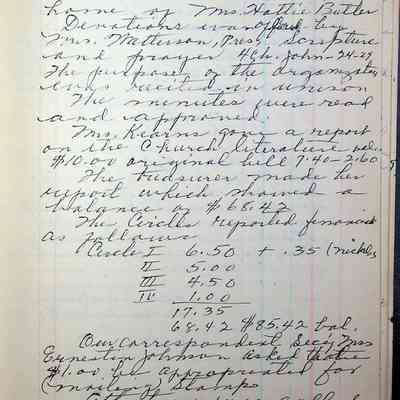 home of Mrs. Hattie Butler
Devotions was offered by
Mrs. Watterson, Pres, Scripture
and prayer 4 ch. John - 24-29
The purpose of the organization
was recited in unison
The minutes were read
and approved.
Mrs. Kearns gave a report
on the Church literature
$10.00 original bill 7.40 - 2.60
The tresurer made her
report which showed a
balance of $68.42
The Circles reported finances
as follows
Circle I 6.50 + .35 (nickles
II 5.00
III 4.50
IV 1.00
17.35
68.42 $85.42 bal.
Our correspondent Secy, Mrs
Ernestin Johnson asked that
$1.00 be appropriated for
(mailing) stamps